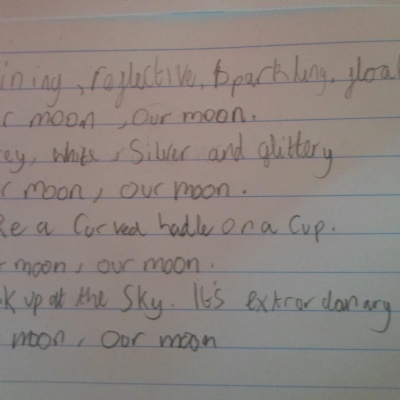 ining, reflective, sparkling, floa
r moon, our moon.
ey, white, silver and glittery
r moon, our moon.
ke a curved hadle on a cup.
r moon, our moon.
k up at the sky. It's extrordanary
r moon, our moon